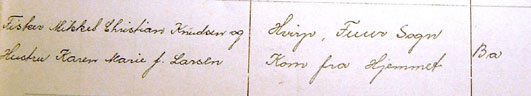 Fisker Mikkel Christian Knudsen og
Hustru Karen Marie f. Larsen
Hvirp, Fuur Sogn
Kom fra Hjemmet
Ba